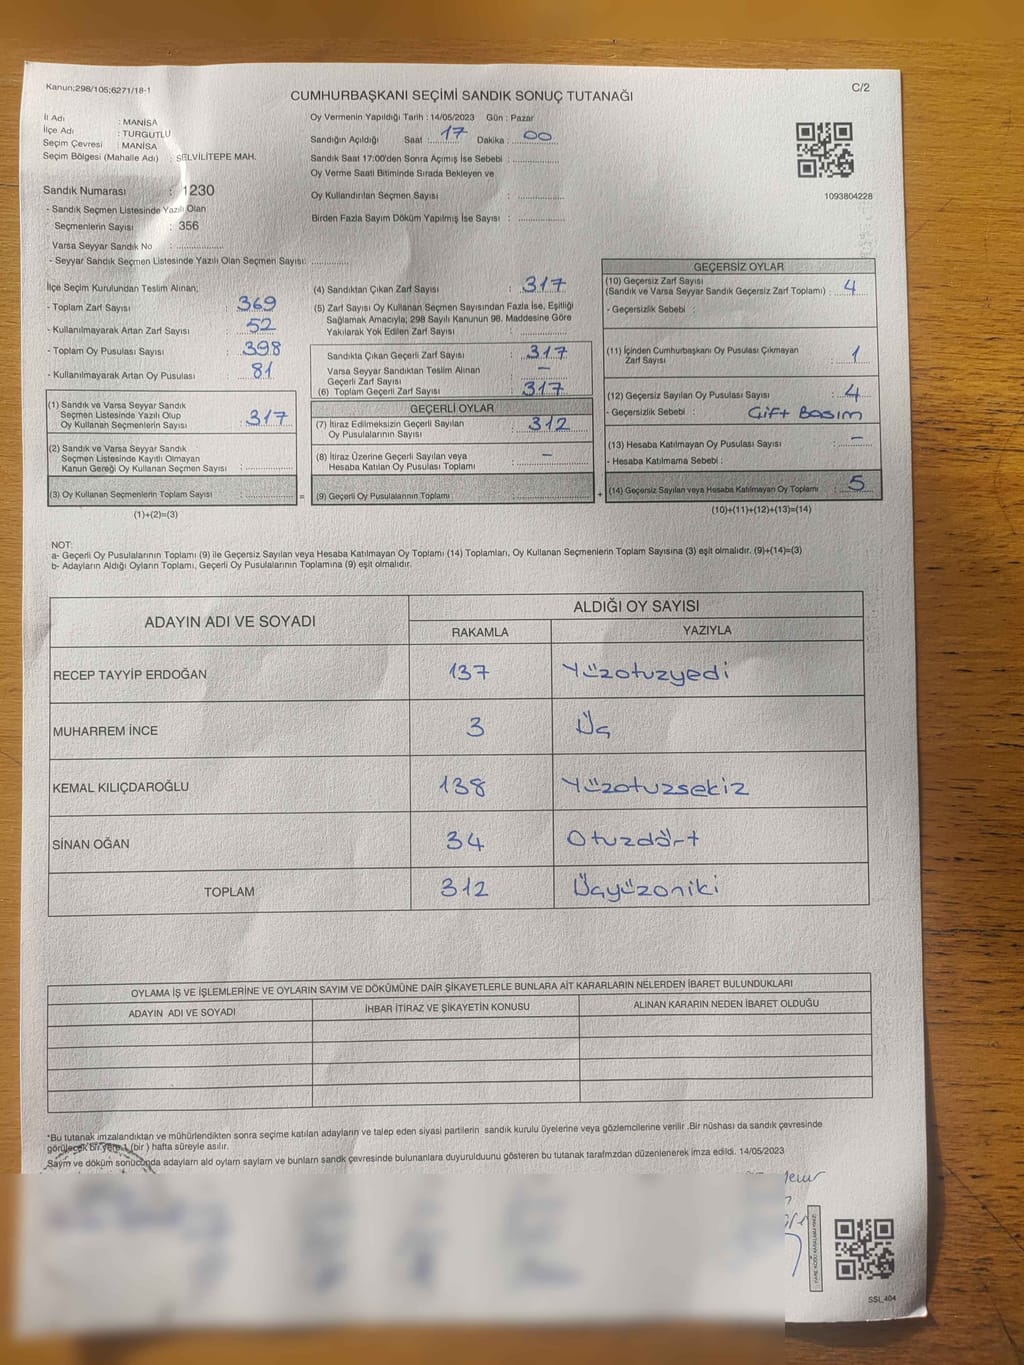 Kanun;298/105;6271/18-1
C/2
CUMHURBAŞKANI SEÇİMİ SANDIK SONUÇ TUTANAĞI
İl Adı : MANİSA
İlçe Adı : TURGUTLU
Seçim Çevresi : MANİSA
Seçim Bölgesi (Mahalle Adı) : SELVİLİTEPE MAH.
Sandık Numarası : 1230
- Sandık Seçmen Listesinde Yazılı Olan
Seçmenlerin Sayısı : 356
Varsa Seyyar Sandık No : ..................
- Seyyar Sandık Seçmen Listesinde Yazılı Olan Seçmen Sayısı: ..............
Oy Vermenin Yapıldığı Tarih : 14/05/2023 Gün : Pazar
Sandığın Açıldığı Saat : 17 Dakika : 00
Sandık Saat 17:00'den Sonra Açımış İse Sebebi : ..................
Oy Verme Saati Bitiminde Sırada Bekleyen ve
Oy Kullandırılan Seçmen Sayısı : ..................
Birden Fazla Sayım Döküm Yapılmış İse Sayısı : ..................
1093804228
İlçe Seçim Kurulundan Teslim Alınan;
- Toplam Zarf Sayısı : 369
- Kullanılmayarak Artan Zarf Sayısı : 52
- Toplam Oy Pusulası Sayısı : 398
- Kullanılmayarak Artan Oy Pusulası : 81
(1) Sandık ve Varsa Seyyar Sandık
Seçmen Listesinde Yazılı Olup
Oy Kullanan Seçmenlerin Sayısı : 317
(2) Sandık ve Varsa Seyyar Sandık
Seçmen Listesinde Kayıtlı Olmayan
Kanun Gereği Oy Kullanan Seçmen Sayısı : ..................
(3) Oy Kullanan Seçmenlerin Toplam Sayısı : ..................
(1)+(2)=(3)
(4) Sandıktan Çıkan Zarf Sayısı : 317
(5) Zarf Sayısı Oy Kullanan Seçmen Sayısından Fazla İse, Eşitliği
Sağlamak Amacıyla; 298 Sayılı Kanunun 98. Maddesine Göre
Yakılarak Yok Edilen Zarf Sayısı : ..................
Sandıkta Çıkan Geçerli Zarf Sayısı : 317
Varsa Seyyar Sandıktan Teslim Alınan
Geçerli Zarf Sayısı : –
(6) Toplam Geçerli Zarf Sayısı : 317
GEÇERLİ OYLAR
(7) İtiraz Edilmeksizin Geçerli Sayılan
Oy Pusulalarının Sayısı : 312
(8) İtiraz Üzerine Geçerli Sayılan veya
Hesaba Katılan Oy Pusulası Toplamı : –
= (9) Geçerli Oy Pusulalarının Toplamı : ..................
GEÇERSİZ OYLAR
(10) Geçersiz Zarf Sayısı
(Sandık ve Varsa Seyyar Sandık Geçersiz Zarf Toplamı) : 4
- Geçersizlik Sebebi :
(11) İçinden Cumhurbaşkanı Oy Pusulası Çıkmayan
Zarf Sayısı : 1
(12) Geçersiz Sayılan Oy Pusulası Sayısı : 4
- Geçersizlik Sebebi : Gift Basım
(13) Hesaba Katılmayan Oy Pusulası Sayısı : –
- Hesaba Katılmama Sebebi :
+ (14) Geçersiz Sayılan veya Hesaba Katılmayan Oy Toplamı : 5
(10)+(11)+(12)+(13)=(14)
NOT:
a- Geçerli Oy Pusulalarının Toplamı (9) ile Geçersiz Sayılan veya Hesaba Katılmayan Oy Toplamı (14) Toplamları, Oy Kullanan Seçmenlerin Toplam Sayısına (3) eşit olmalıdır. (9)+(14)=(3)
b- Adayların Aldığı Oyların Toplamı, Geçerli Oy Pusulalarının Toplamına (9) eşit olmalıdır.
ADAYIN ADI VE SOYADI
ALDIĞI OY SAYISI
RAKAMLA YAZIYLA
RECEP TAYYİP ERDOĞAN 137 Yüzotuzyedi
MUHARREM İNCE 3 Üç
KEMAL KILIÇDAROĞLU 138 Yüzotuzsekiz
SİNAN OĞAN 34 Otuzdört
TOPLAM 312 Üçyüzoniki
OYLAMA İŞ VE İŞLEMLERİNE VE OYLARIN SAYIM VE DÖKÜMÜNE DAİR ŞİKAYETLERLE BUNLARA AİT KARARLARIN NELERDEN İBARET BULUNDUKLARI
ADAYIN ADI VE SOYADI İHBAR İTİRAZ VE ŞİKAYETİN KONUSU ALINAN KARARIN NEDEN İBARET OLDUĞU
*Bu tutanak imzalandıktan ve mühürlendikten sonra seçime katılan adayların ve talep eden siyasi partilerin sandık kurulu üyelerine veya gözlemcilerine verilir .Bir nüshası da sandık çevresinde
görülecek bir yere 1 (bir ) hafta süreyle asılır.
Sayım ve döküm sonucunda adayların ald oyların sayların ve bunların sandk çevresinde bulunanlara duyurulduunu gösteren bu tutanak tarafmzdan düzenlenerek imza edildi. 14/05/2023
SSL_404